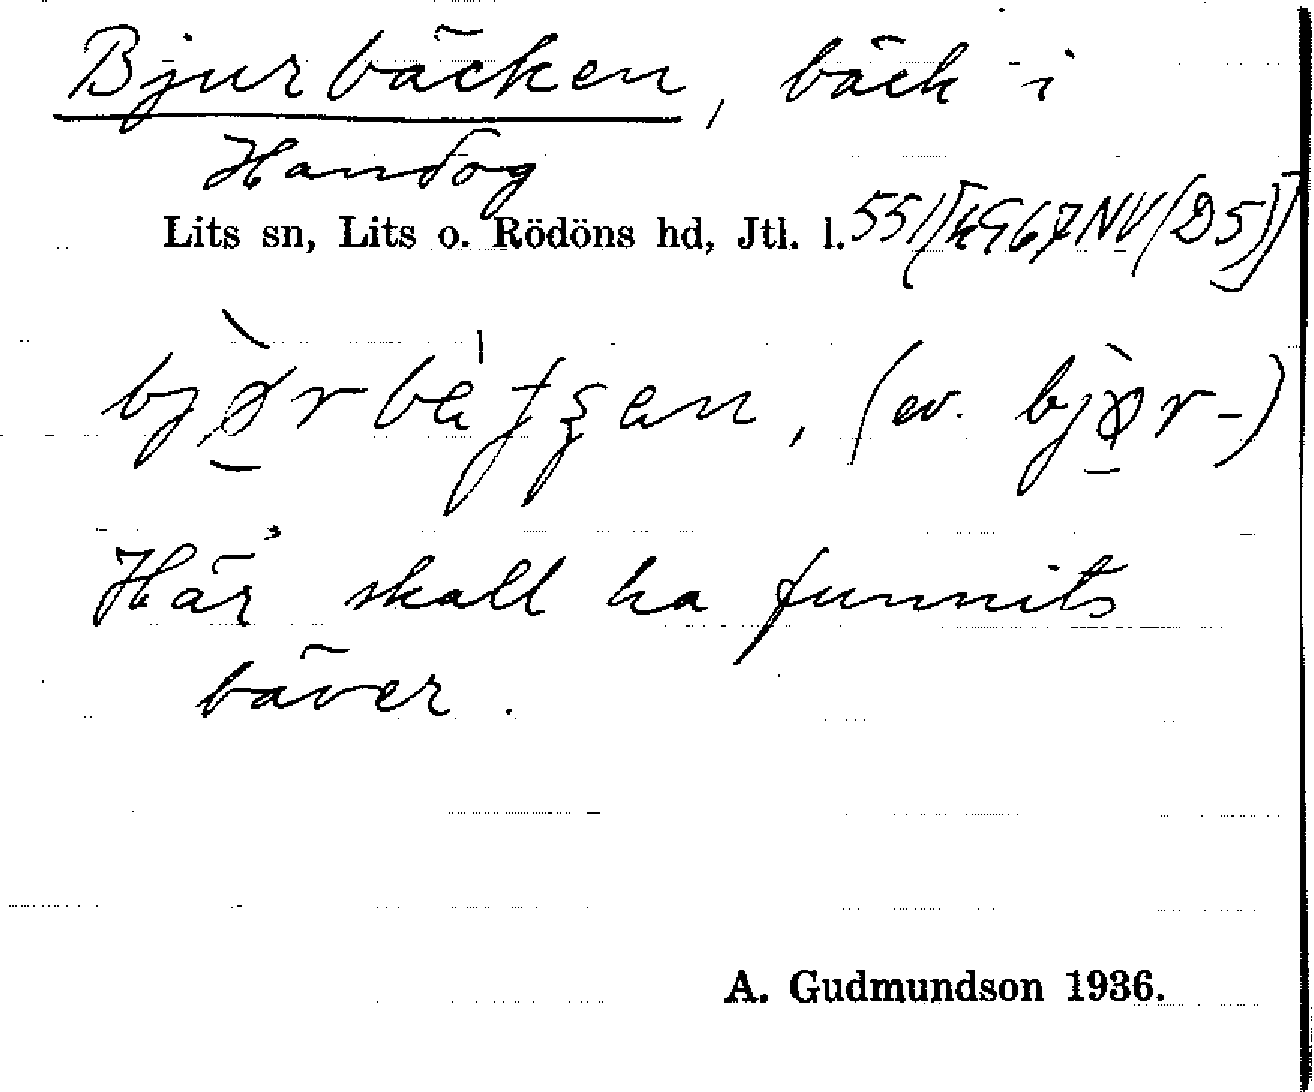 Bjurbäcken, bäck i
Handog
Lits sn, Lits o. Rödöns hd, Jtl. l. 551
(ev. bjø̀r-)
Här skall ha funnits
bäver.
A. Gudmundson 1936.